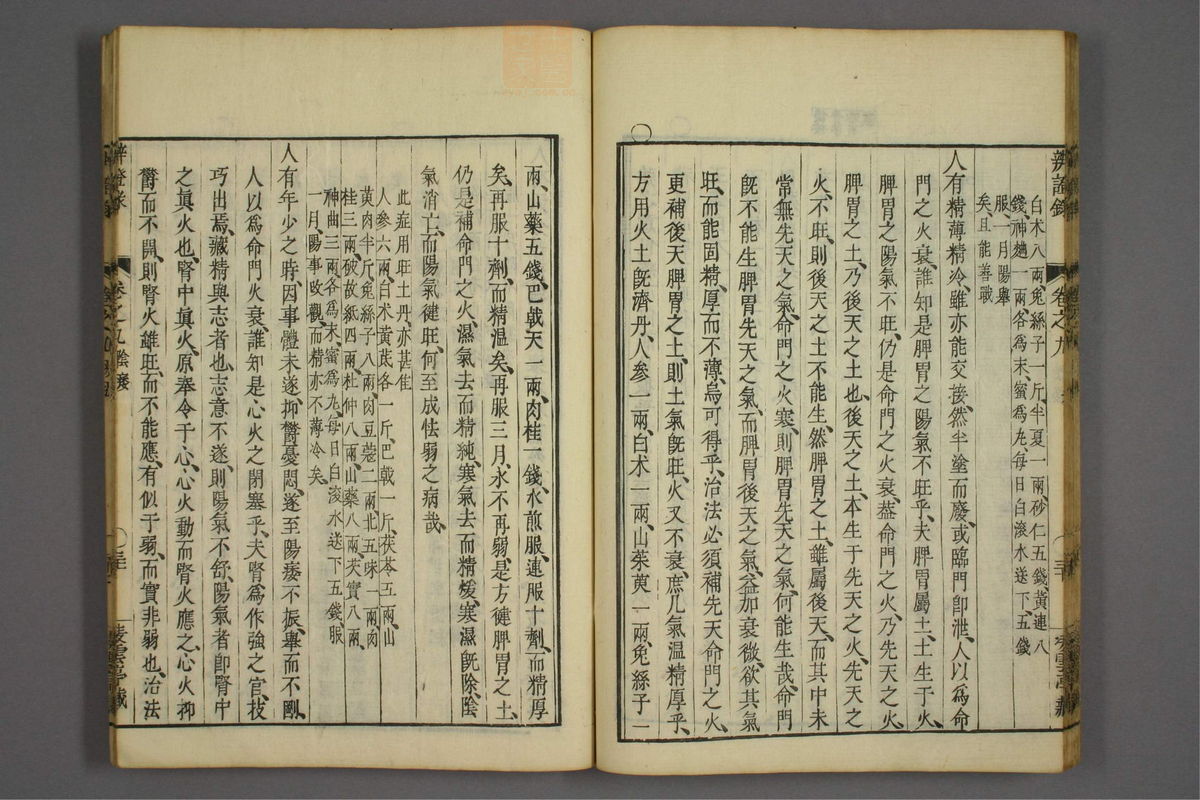 辨證錄 卷之九
白朮八兩、兔絲子一斤、半夏一兩、砂仁五錢、黃連八
錢、神麯一兩、各爲末、蜜爲丸、每日白滾水送下、五錢
服、一月陽舉
矣、且能善戰
人有精薄精冷、雖亦能交接、然半塗而廢、或臨門卽泄、人以爲命
門之火衰、誰知是脾胃之陽氣不旺乎、夫脾胃屬土、土生于火、
脾胃之陽氣不旺、仍是命門之火衰、葢命門之火、乃先天之火、
脾胃之土、乃後天之土也、後天之土、本生于先天之火、先天之
火、不旺、則後天之土不能生、然脾胃之土、雖屬後天、而其中未
常無先天之氣、命門之火寒、則脾胃先天之氣、何能生哉、命門
旣不能生脾胃先天之氣、而脾胃後天之氣、益加衰微、欲其氣
旺、而能固精、厚而不薄、烏可得乎、治法必須補先天命門之火、
更補後天脾胃之土、則土氣旣旺、火又不衰、庶几氣溫精厚乎、
方用火土旣濟丹、人参一兩、白朮一兩、山茱萸一兩、兔絲子一
兩、山藥五錢、巴戟天一兩、肉桂一錢、水煎服、連服十劑、而精厚
矣、再服十劑、而精溫矣、再服三月、永不再弱、是方健脾胃之土、
仍是補命門之火、濕氣去而精純、寒氣去而精煖、寒濕旣除、陰
氣消亡、而陽氣健旺、何至成怯弱之病哉、
此症用旺土丹、亦甚佳
人参六兩、白朮黃芪各一斤、巴戟一斤、茯苓五兩、山
黄肉半斤、兔絲子八兩、肉豆蔻二兩、北五味一兩、肉
桂三兩、破故紙四兩、杜仲八兩、山藥八兩、芡實八兩、
神曲三兩、各爲末、蜜爲丸、每日白滾水送下五錢、服
一月、陽事改觀、而精亦不薄冷矣、
人有年少之時、因事體未遂、抑鬱憂悶、遂至陽痿不振、舉而不剛、
人以爲命門火衰、誰知是心火之閉塞乎、夫腎爲作強之官、技
巧出焉、藏精與志者也、志意不遂、則陽氣不舒、陽氣者卽腎中
之眞火也、腎中眞火、原奉令于心、心火動而腎火應之、心火抑
鬱而不開、則腎火雖旺、而不能應、有似于弱、而實非弱也、治法
卷之九 陰痿